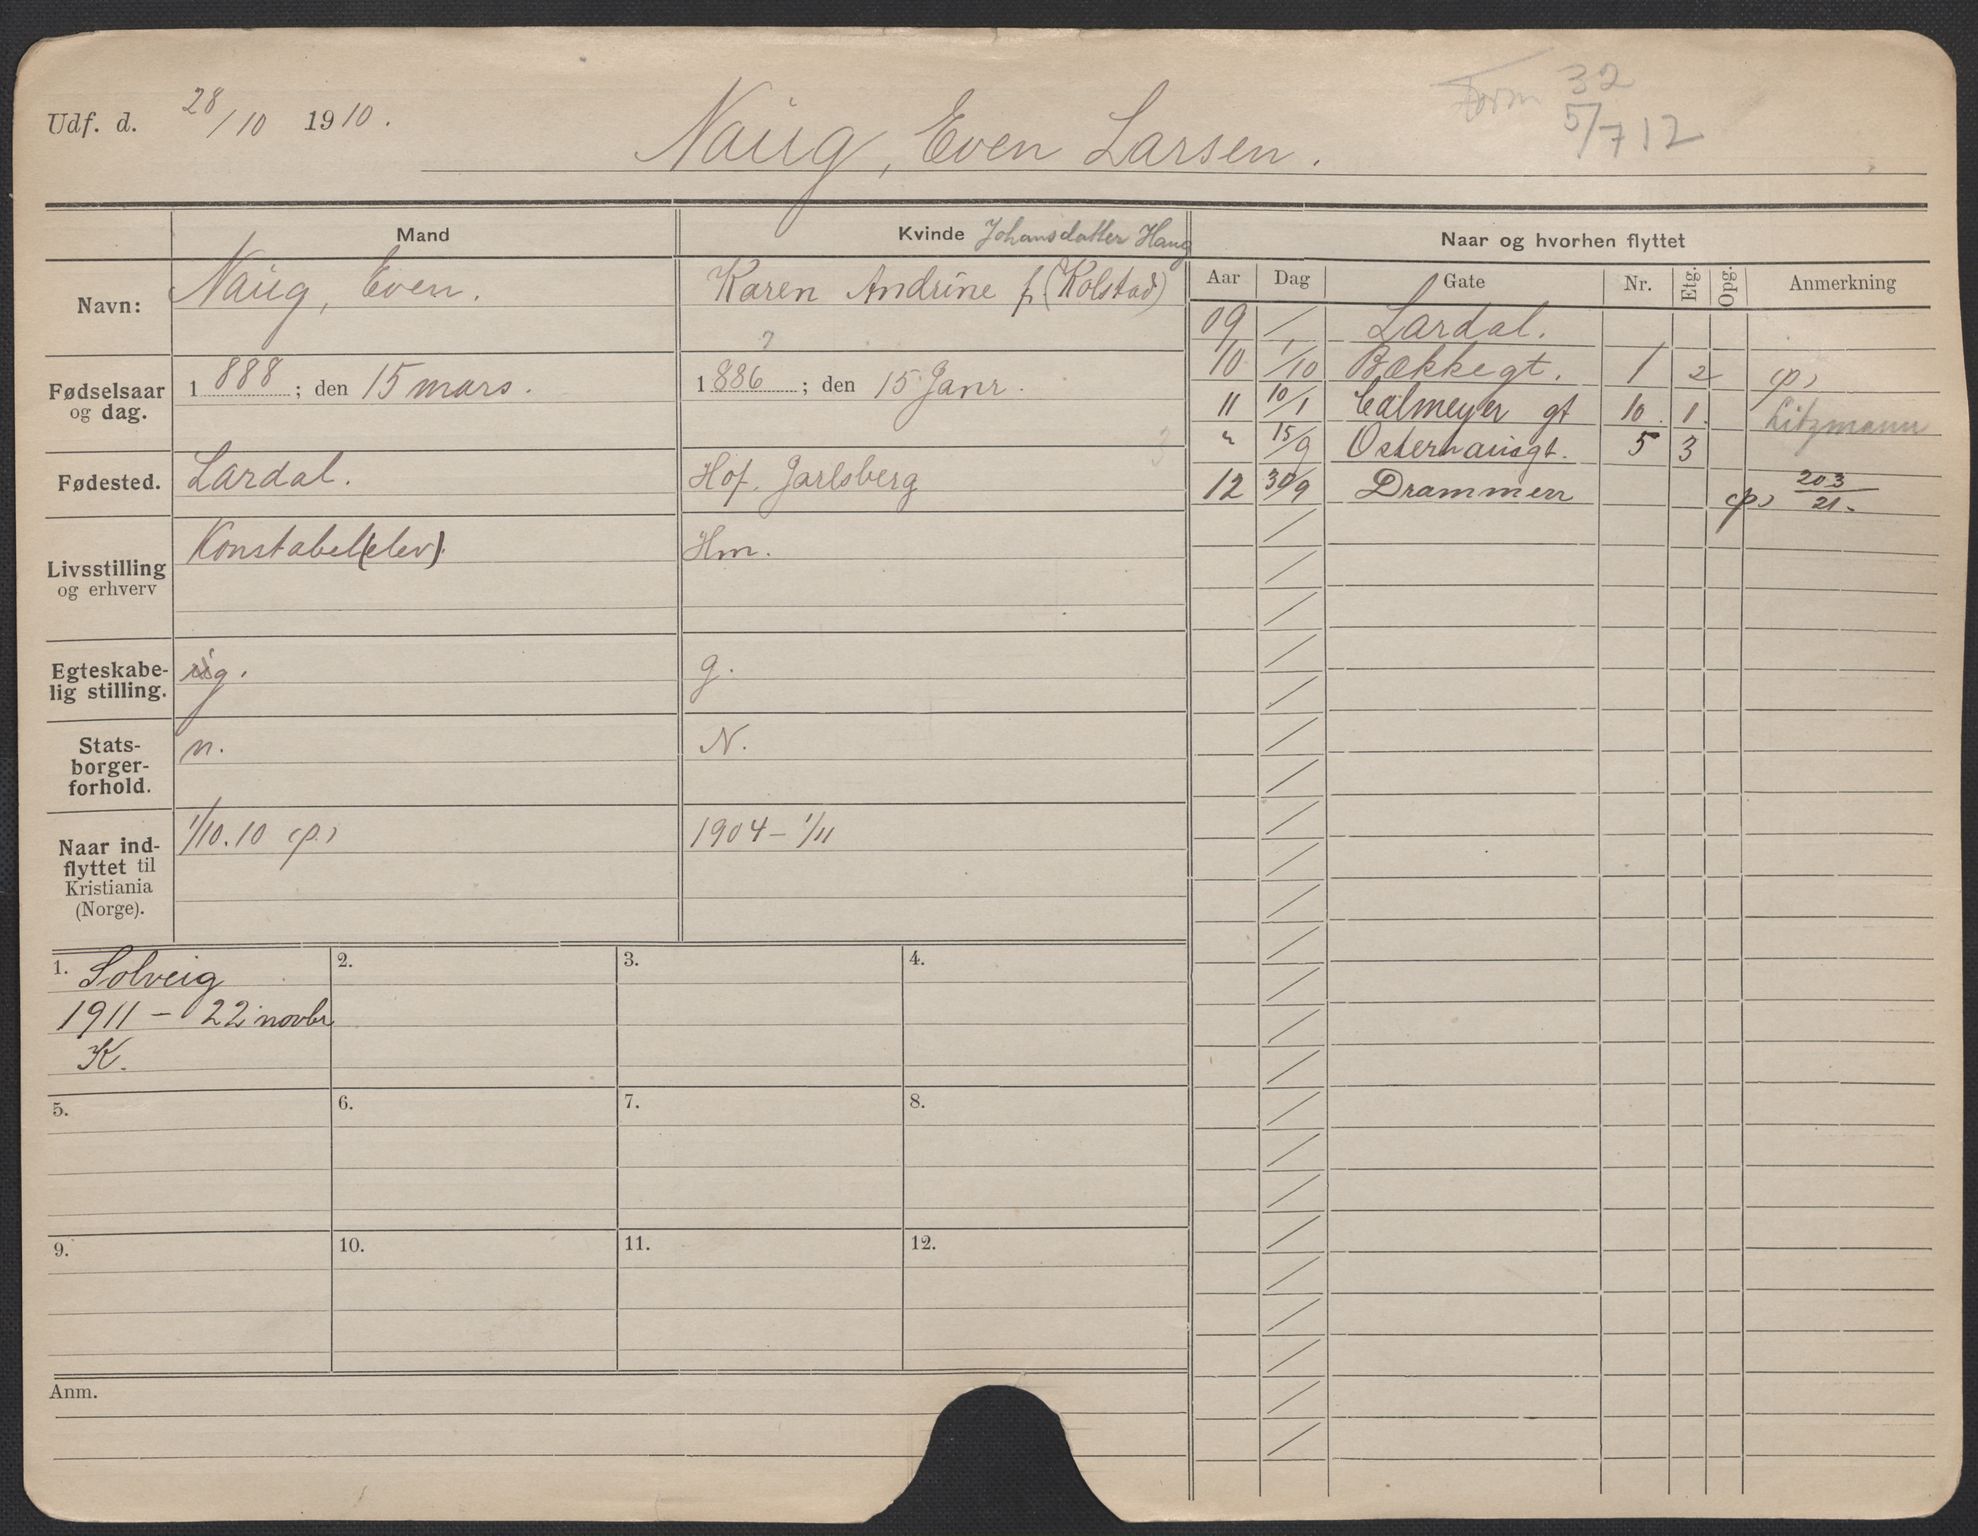 Udf. d. 28/10 1910.
Naug, Even Larsen.
Form 32
5/7 12
Mand
Kvinde Johansdatter Haug
Naar og hvorhen flyttet
Navn:
Naug, Even.
Karen Andrine f. (Kolstad)
Aar Dag Gate Nr. Etg. Opg. Anmerkning
09 / Lardal.
10 1/10 Bækkegt. 1 2 (p)
11 10/1 Calmeyer gt 10. 1. Litzmann
" 15/9 Osterhausgt. 5 3
12 30/9 Drammen (p) 203/21-
Fødselsaar
og dag.
1888; den 15 mars.
1886; den 15 Janr.
Fødested.
Lardal.
Hof. Jarlsberg
Livsstilling
og erhverv
Konstabel(elev).
Hm.
Egteskabe-
lig stilling.
g.
g.
Stats-
borger-
forhold.
n.
N.
Naar ind-
flyttet til
Kristiania
(Norge).
1/10.10 (p.)
1904 - 1/11
1. Solveig
1911 - 22 novbr
K.
2.
3.
4.
5.
6.
7.
8.
9.
10.
11.
12.
Anm.